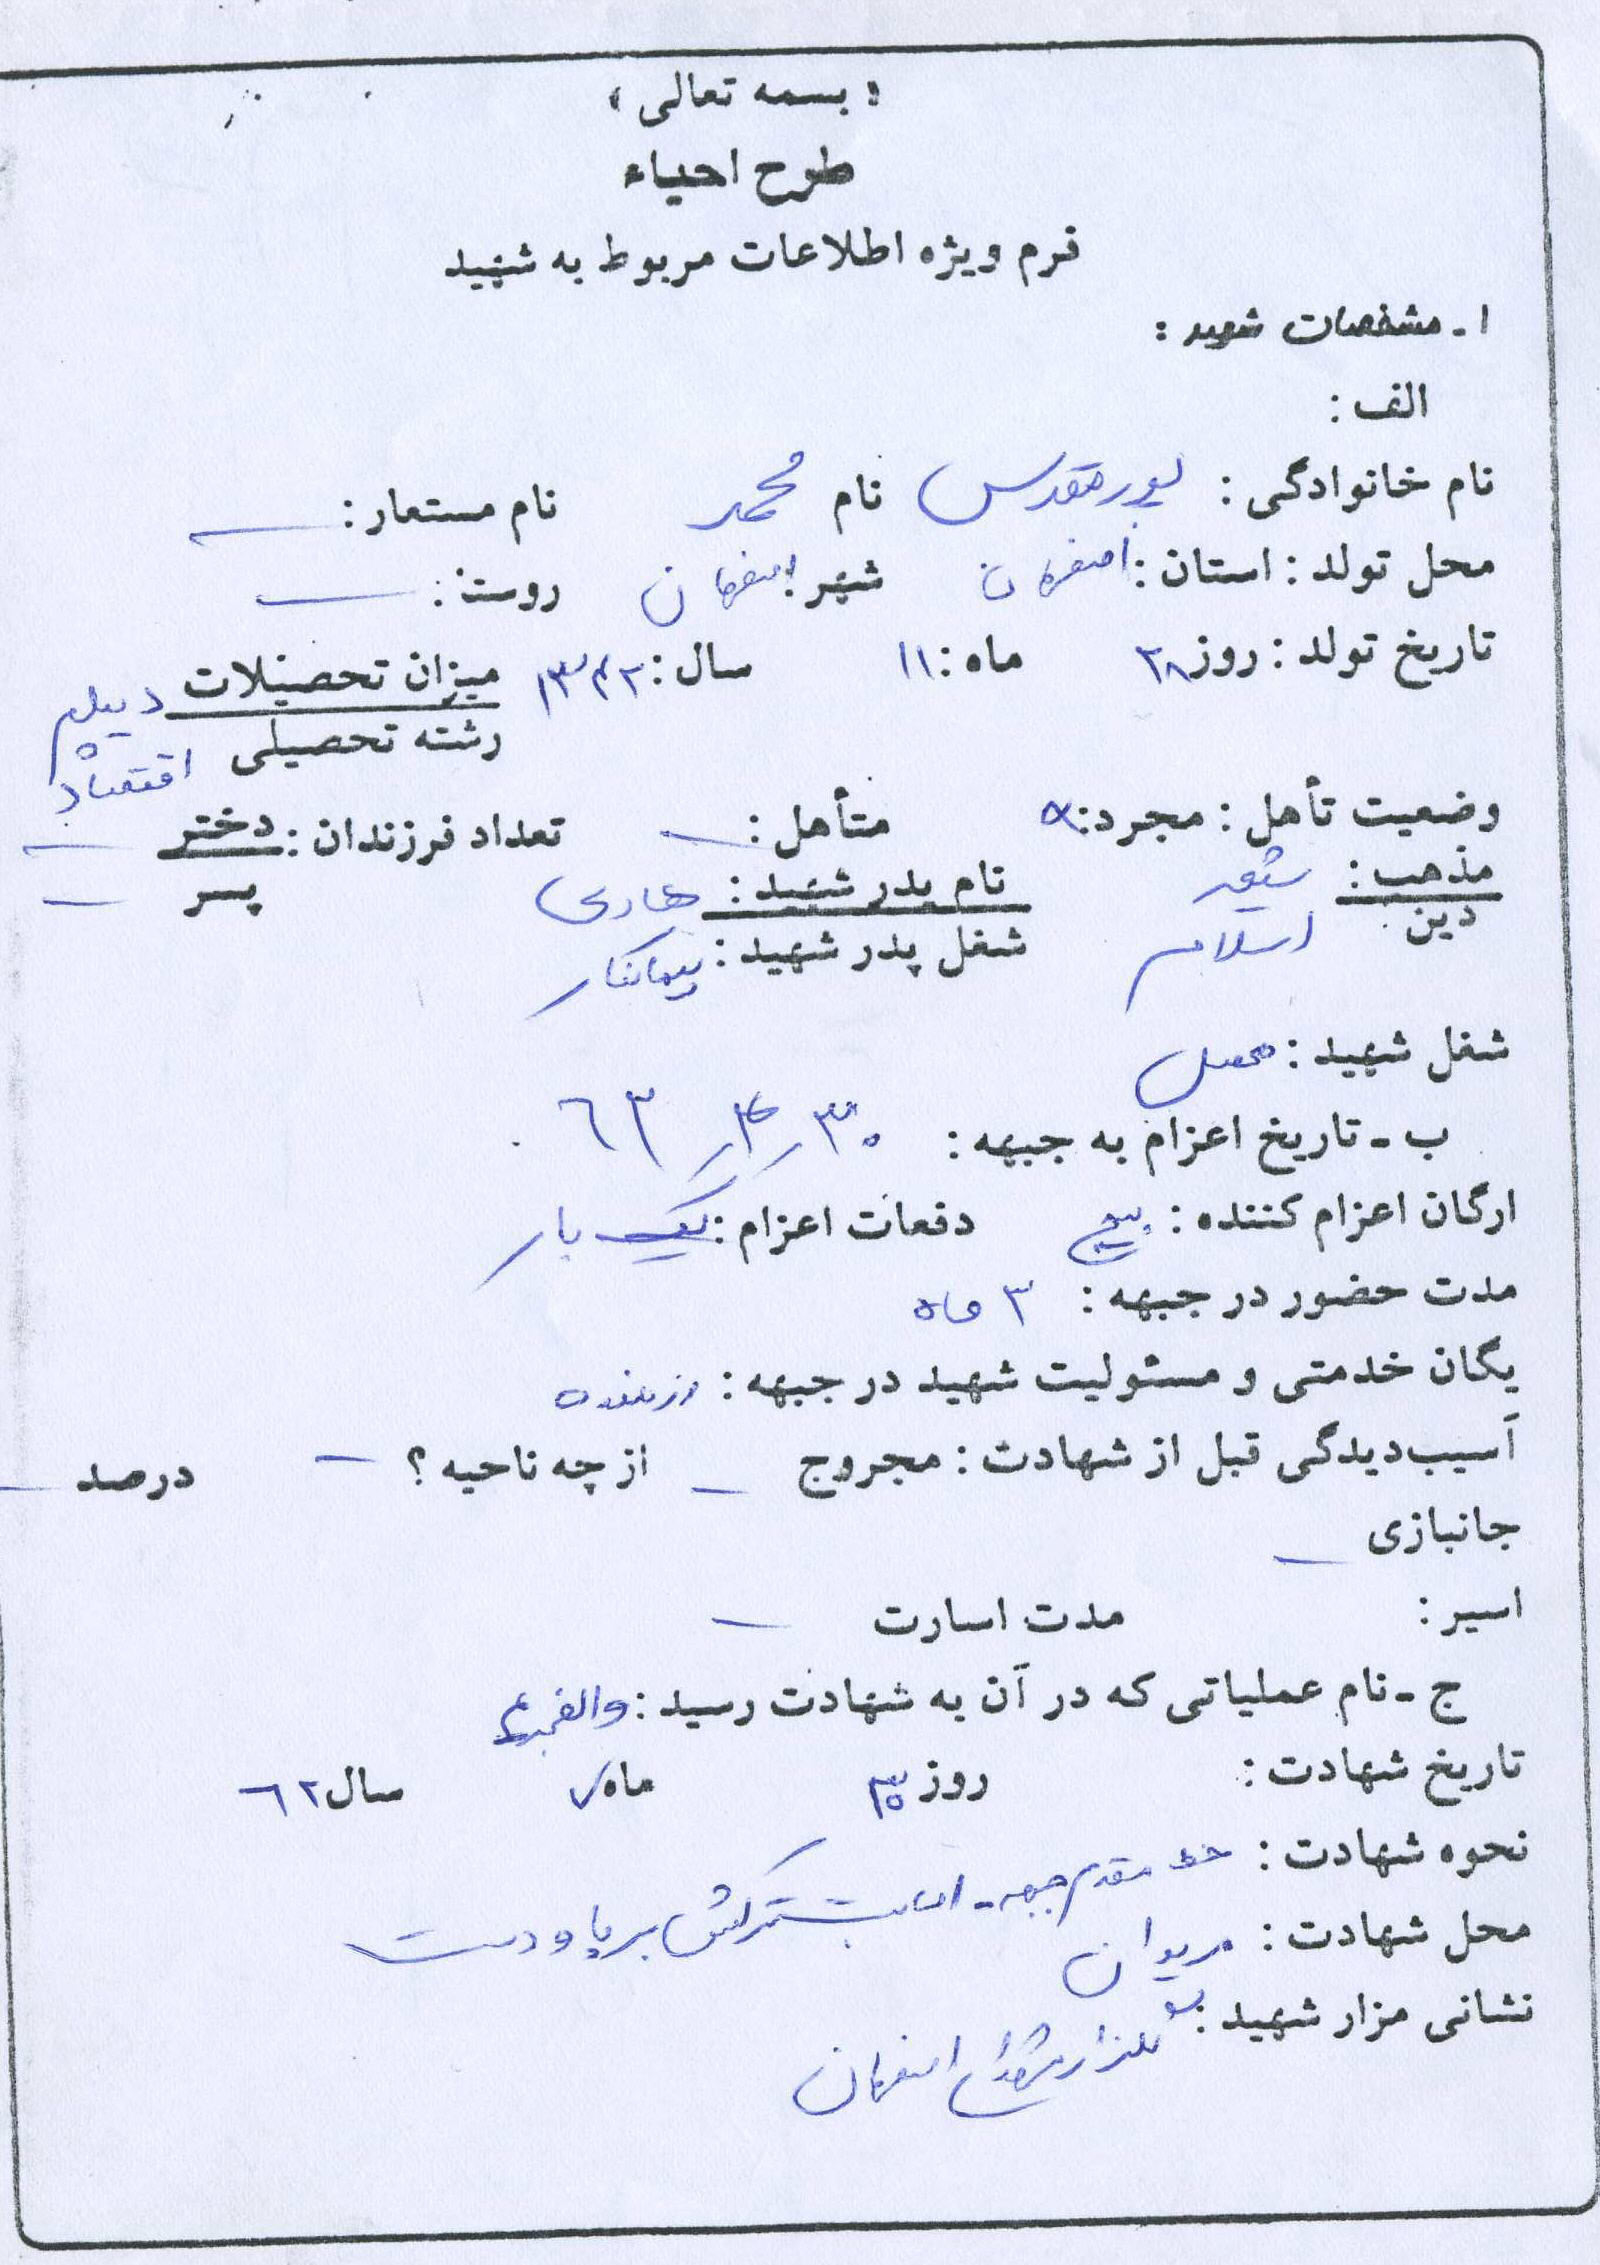 « بسمه تعالی »
طرح احیاء
فرم ویژه اطلاعات مربوط به شهید
۱ـ مشخصات شهید :
الف :
نام خانوادگی : پورمقدس نام محمد نام مستعار : ـ
محل تولد : استان : اصفهان شهر : اصفهان روستا : ـ
تاریخ تولد : روز ۲۸ ماه : ۱۱ سال : ۱۳۴۲ میزان تحصیلات دیپلم
رشته تحصیلی اقتصاد
وضعیت تأهل : مجرد : × متأهل : ـ تعداد فرزندان : دختر ـ
پسر ـ
مذهب : شیعه نام پدر شهید : هادی
دین اسلام شغل پدر شهید : پیمانکار
شغل شهید : محصل
ب ـ تاریخ اعزام به جبهه : ۳۰ / ۴ / ۶۳
ارگان اعزام کننده : بسیج دفعات اعزام : یک بار
مدت حضور در جبهه : ۳ ماه
یگان خدمتی و مسئولیت شهید در جبهه : رزمنده
آسیب‌دیدگی قبل از شهادت : مجروح ـ از چه ناحیه ؟ ـ درصد ـ
جانبازی ـ
اسیر : مدت اسارت ـ
ج ـ نام عملیاتی که در آن به شهادت رسید : والفجر ۴
تاریخ شهادت : روز ۳۰ ماه ۷ سال ۶۲
نحوه شهادت : خط مقدم جبهه ـ اصابت ترکش بر پا و دست
محل شهادت : مریوان
نشانی مزار شهید : گلزار شهدای اصفهان